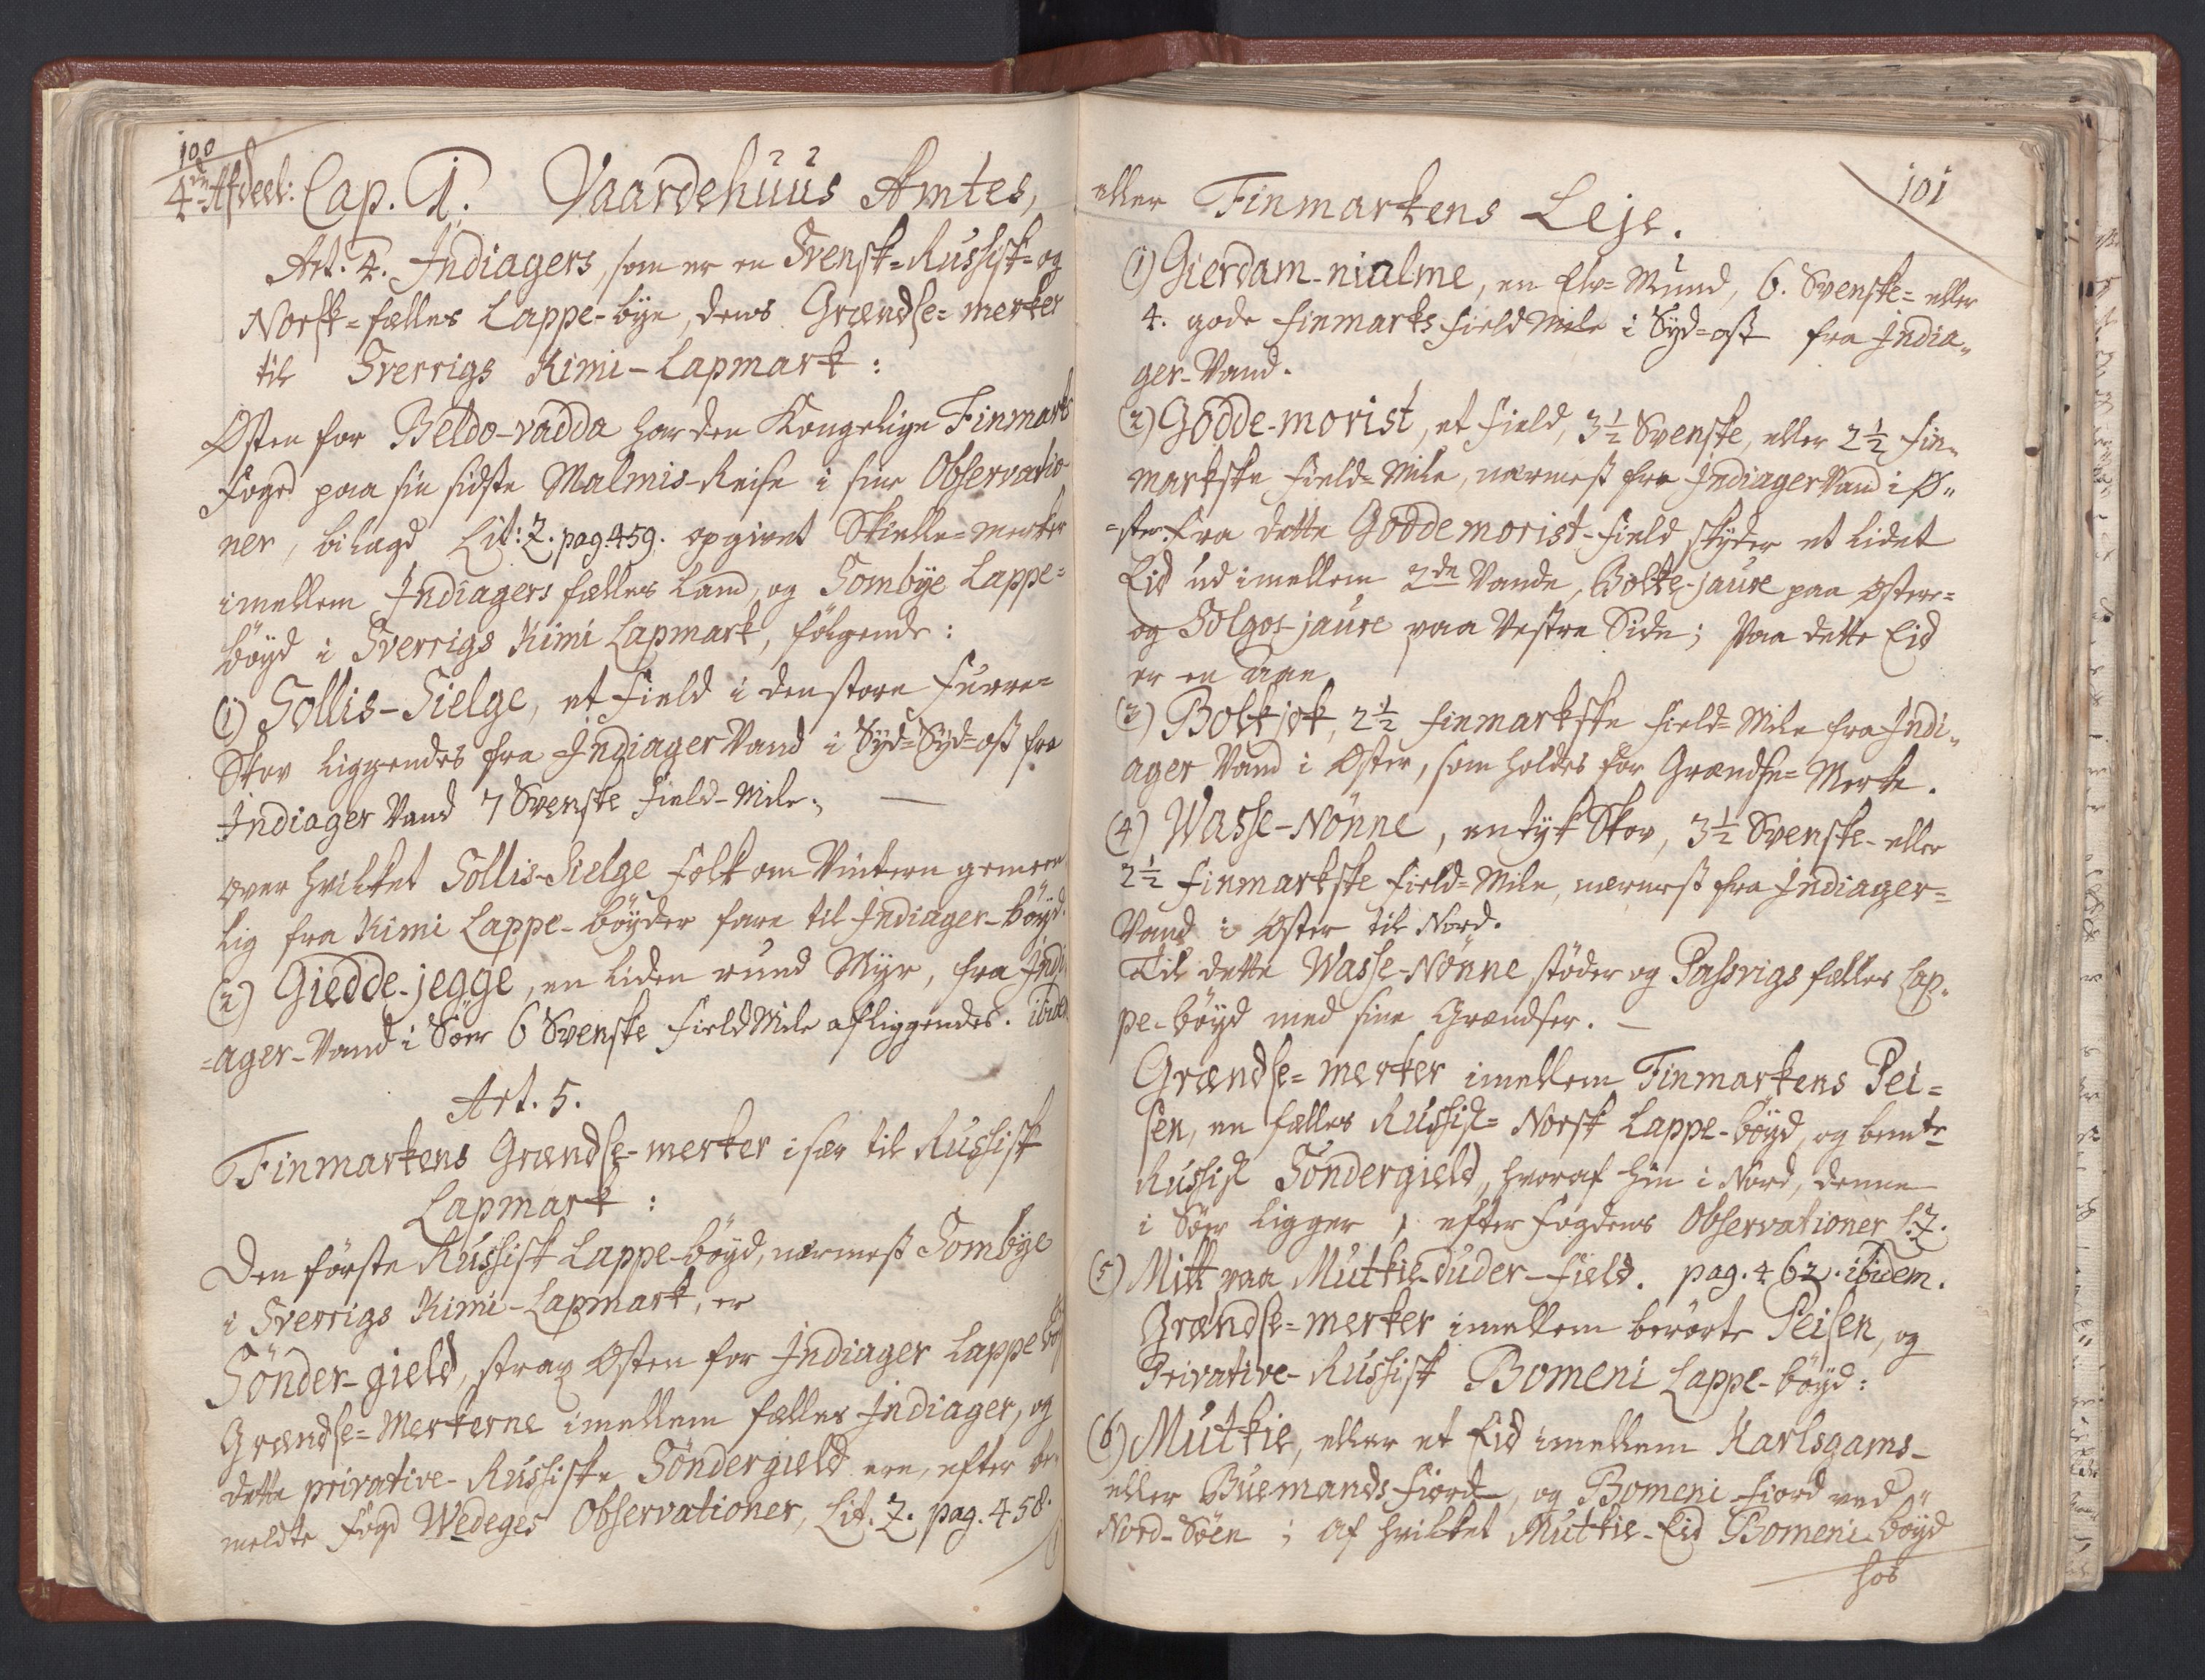 100
4de Afdeel: Cap. 1. Vaardehuus Amtes,
Art. 4. Indiagers, som er en Svensk-Russisk- og
Norsk-fælles Lappe-bye, dens Grændse-merker
til Sverrigs Kimi-Lapmark:
Østen for Beldo-vadda har den Kongelige Finmarks
Foged paa sin sidste Malmis-Reise i sine Observatio-
ner, bilagd Lit: Z. pag. 459. opgivet Skielle-merker
imellem Indiagers fælles Land, og Sombye Lappe-
böyd i Sverrigs Kimi Lapmark, følgende:
(1) Sollis-Sielge, et Field i den store Furre-
Skov liggendes fra Indiager Vand i Syd-Syd-ost fra
Indiager Vand 7 Svenske Field-Mile;
over hvilket Sollis-Sielge Folk om Vintern gemeen-
lig fra Kimi Lappe-böyder fare til Indiager-böyd.
(2) Giedde-jegge, en liden rund Myr, fra Indi-
=ager-Vand i Sör 6 Svenske Field Mile afliggendes. ibid
Art. 5.
Finmarkens Grændse-merker især til Russisk
Lapmark:
Den förste Russisk Lappe-böyd, nærmest Sombye
i Sverrigs Kimi-Lapmark, er
Sönder-gield, strax Østen for Indiager Lappe bö
Grændse-Merkerne imellem fælles Indiager, og
dette privative-Russiske Söndergield ere, efter be-
meldte Fogd Wedeges Observationer, Lit. Z. pag. 458.
eller Finmarkens Leje.
101
(1) Gierdam-nialme, en Elv-Mund, 6. Svenske- eller
4. gode finmarks field Mile i Syd-ost fra India-
ger-Vand.
(2) Godde-morist, et Field, 3 1/2 Svenske, eller 2 1/2 fin-
markske Field-Mile, nærmest fra Indiager Vand i Ø-
=ster. Fra dette Goddemorist-Field skyder et lidet
Eid ud imellem 2de Vande, Bolke-jaure paa Østre-
og Solgos-jaure paa Vestre Side; Paa dette Eid
er en Aae
(3) Bolkjok, 2 1/2 finmarkske Field-Mile fra Indi-
ager Vand i Øster, som holdes for Grændse-Merke.
(4) Wasse-Nönne, en tyk Skov, 3 1/2 Svenske- eller
2 1/2 Finmarkske Field-Mile, nærmest fra Indiager-
Vand i Øster til Nord.
Til dette Wasse-Nönne stöder og Passvigs fælles Lap-
pe-böyd med sine Grændser.
Grændse-merker imellem Finmarkens Pei-
sen, en fælles Russisk-Norsk Lappe-böyd, og bemte
Russisk Söndergield, hvoraf hin i Nord, denne
i Söer ligger, efter Fogdens Observationer L: Z.
(5) Mitt paa Mutkie-duder-Field. pag. 462. ibidem.
Grændse-merker imellem berörte Peisen, og
Privative-Russisk Bomeni Lappe-böyd:
(6) Mutkie, eller et Eid imellem Karlsgams-
eller Buemands Fiord, og Bomeni-Fiord ved
Nord-Söen; af hvilket Mutkie-Eid Bomeni-böyd
hos